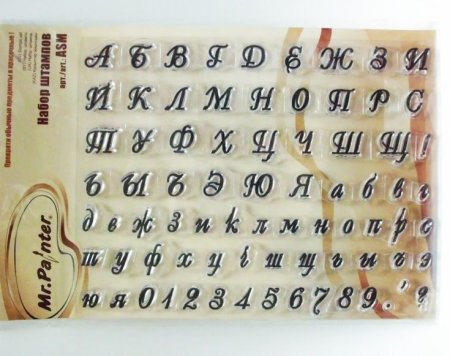 А Б В Г Д Е Ж З И
Й К Л М Н О П Р С
Т У Ф Х Ц Ч Ш Щ !
Ь Ы Ъ Э Ю Я а б в г
д е ж з и к л м н о п р с
т у ф х ц ч ш щ ы ь ъ э
ю я 0 1 2 3 4 5 6 7 8 9 . , ?
Преврати обычные предметы в красочные!
Набор штампов
арт./art.: ASM
Mr.Painter®